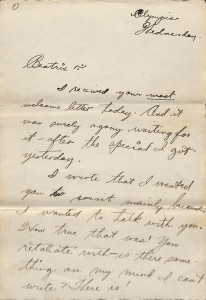 Olympia
Wednesday.
Beatrice
I received your most
welcome letter today. And it
was surely agony waiting for
it - after the special I got
yesterday.
I wrote that I wanted
you mainly because
I wanted to talk with you.
How true that was! You
retaliate with - is there some-
thing on my mind I can't
write? There is!